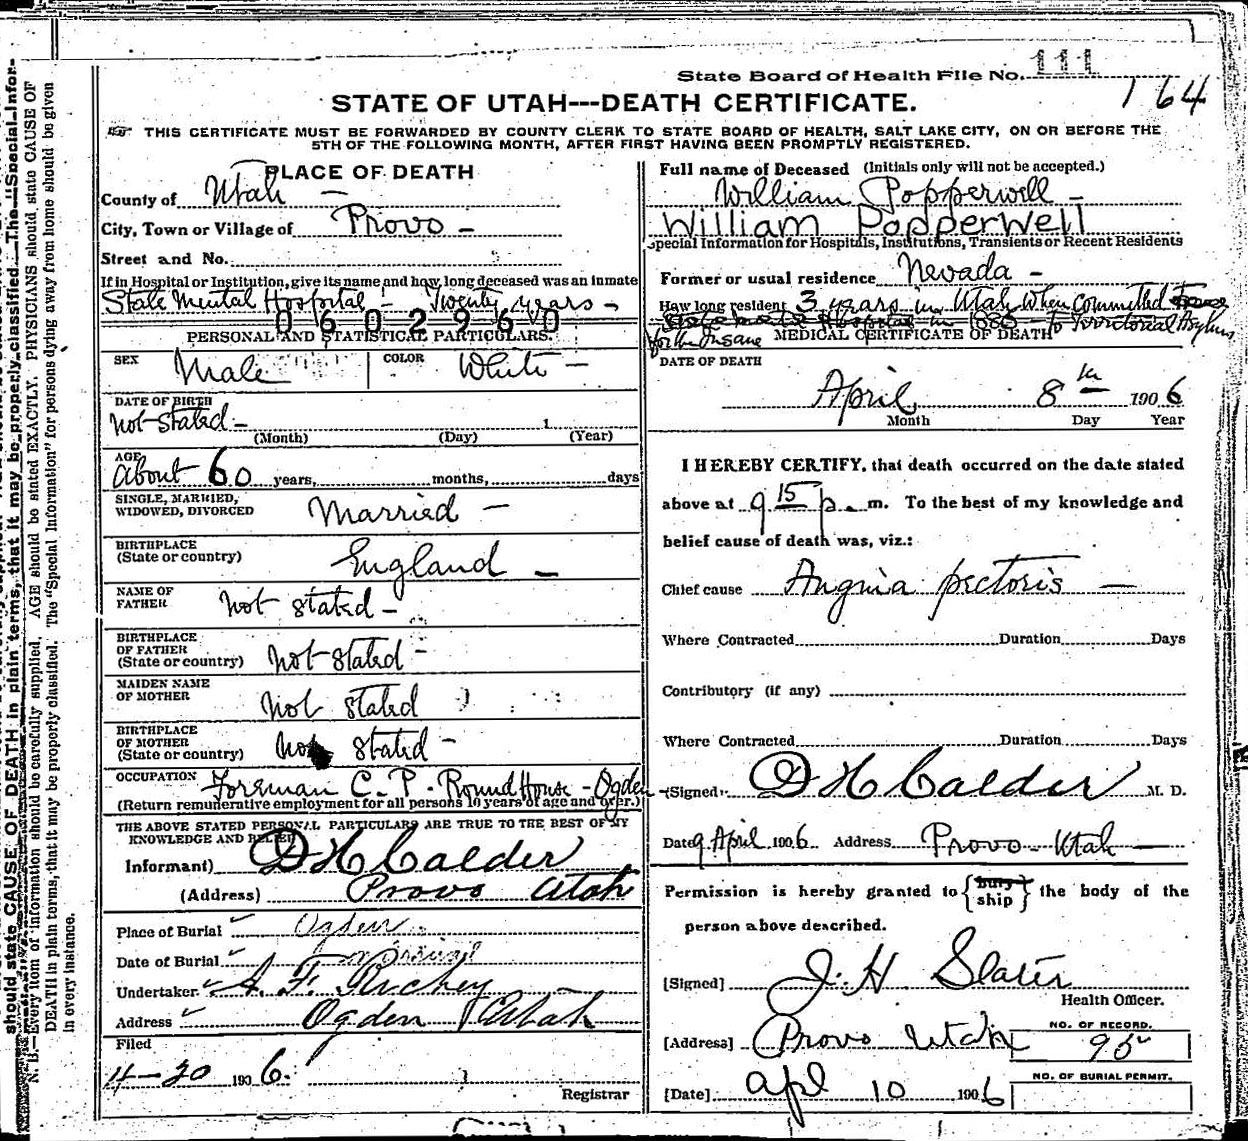 State Board of Health File No. 111
164
STATE OF UTAH---DEATH CERTIFICATE.
THIS CERTIFICATE MUST BE FORWARDED BY COUNTY CLERK TO STATE BOARD OF HEALTH, SALT LAKE CITY, ON OR BEFORE THE
5TH OF THE FOLLOWING MONTH, AFTER FIRST HAVING BEEN PROMPTLY REGISTERED.
PLACE OF DEATH
County of Utah -
City, Town or Village of Provo -
Street and No.
If in Hospital or Institution, give its name and how long deceased was an inmate
State Mental Hospital - Twenty years -
0602960
PERSONAL AND STATISTICAL PARTICULARS.
SEX Male COLOR White -
DATE OF BIRTH
Not Stated - 1
(Month) (Day) (Year)
AGE
About 60 years, months, days
SINGLE, MARRIED,
WIDOWED, DIVORCED Married -
BIRTHPLACE
(State or country) England -
NAME OF
FATHER Not stated -
BIRTHPLACE
OF FATHER
(State or country) Not stated -
MAIDEN NAME
OF MOTHER Not stated
BIRTHPLACE
OF MOTHER
(State or country) Not stated -
OCCUPATION Foreman C. P. Round House - Ogden
(Return remunerative employment for all persons 10 years of age and over.)
THE ABOVE STATED PERSONAL PARTICULARS ARE TRUE TO THE BEST OF MY
KNOWLEDGE AND BELIEF
Informant) D H Calder
(Address) Provo Utah
Place of Burial Ogden
Date of Burial
Undertaker A. F. Richey
Address Ogden Utah
Filed
4-20 1906.
Registrar
Full name of Deceased (Initials only will not be accepted.)
William Popperwell -
William Popperwell
Special Information for Hospitals, Institutions, Transients or Recent Residents
Former or usual residence Nevada -
How long resident 3 years in Utah When committed
to Territorial Asylum
for the Insane MEDICAL CERTIFICATE OF DEATH
DATE OF DEATH
April 8th 1906
Month Day Year
I HEREBY CERTIFY, that death occurred on the date stated
above at 9 15 p. m. To the best of my knowledge and
belief cause of death was, viz.:
Chief cause Angina pectoris -
Where Contracted Duration Days
Contributory (if any)
Where Contracted Duration Days
(Signed) D H Calder M. D.
Date 9 April 1906 Address Provo - Utah -
Permission is hereby granted to {bury ship} the body of the
person above described.
[Signed] J. H. Slater
Health Officer.
[Address] Provo Utah
NO. OF RECORD.
95
[Date] Apl 10 1906
NO. OF BURIAL PERMIT.
should state CAUSE OF DEATH in plain terms, that it may be properly classified. The "Special Infor-
N. B.—Every item of information should be carefully supplied. AGE should be stated EXACTLY. PHYSICIANS should state CAUSE OF
DEATH in plain terms, that it may be properly classified. The "Special Information" for persons dying away from home should be given
in every instance.